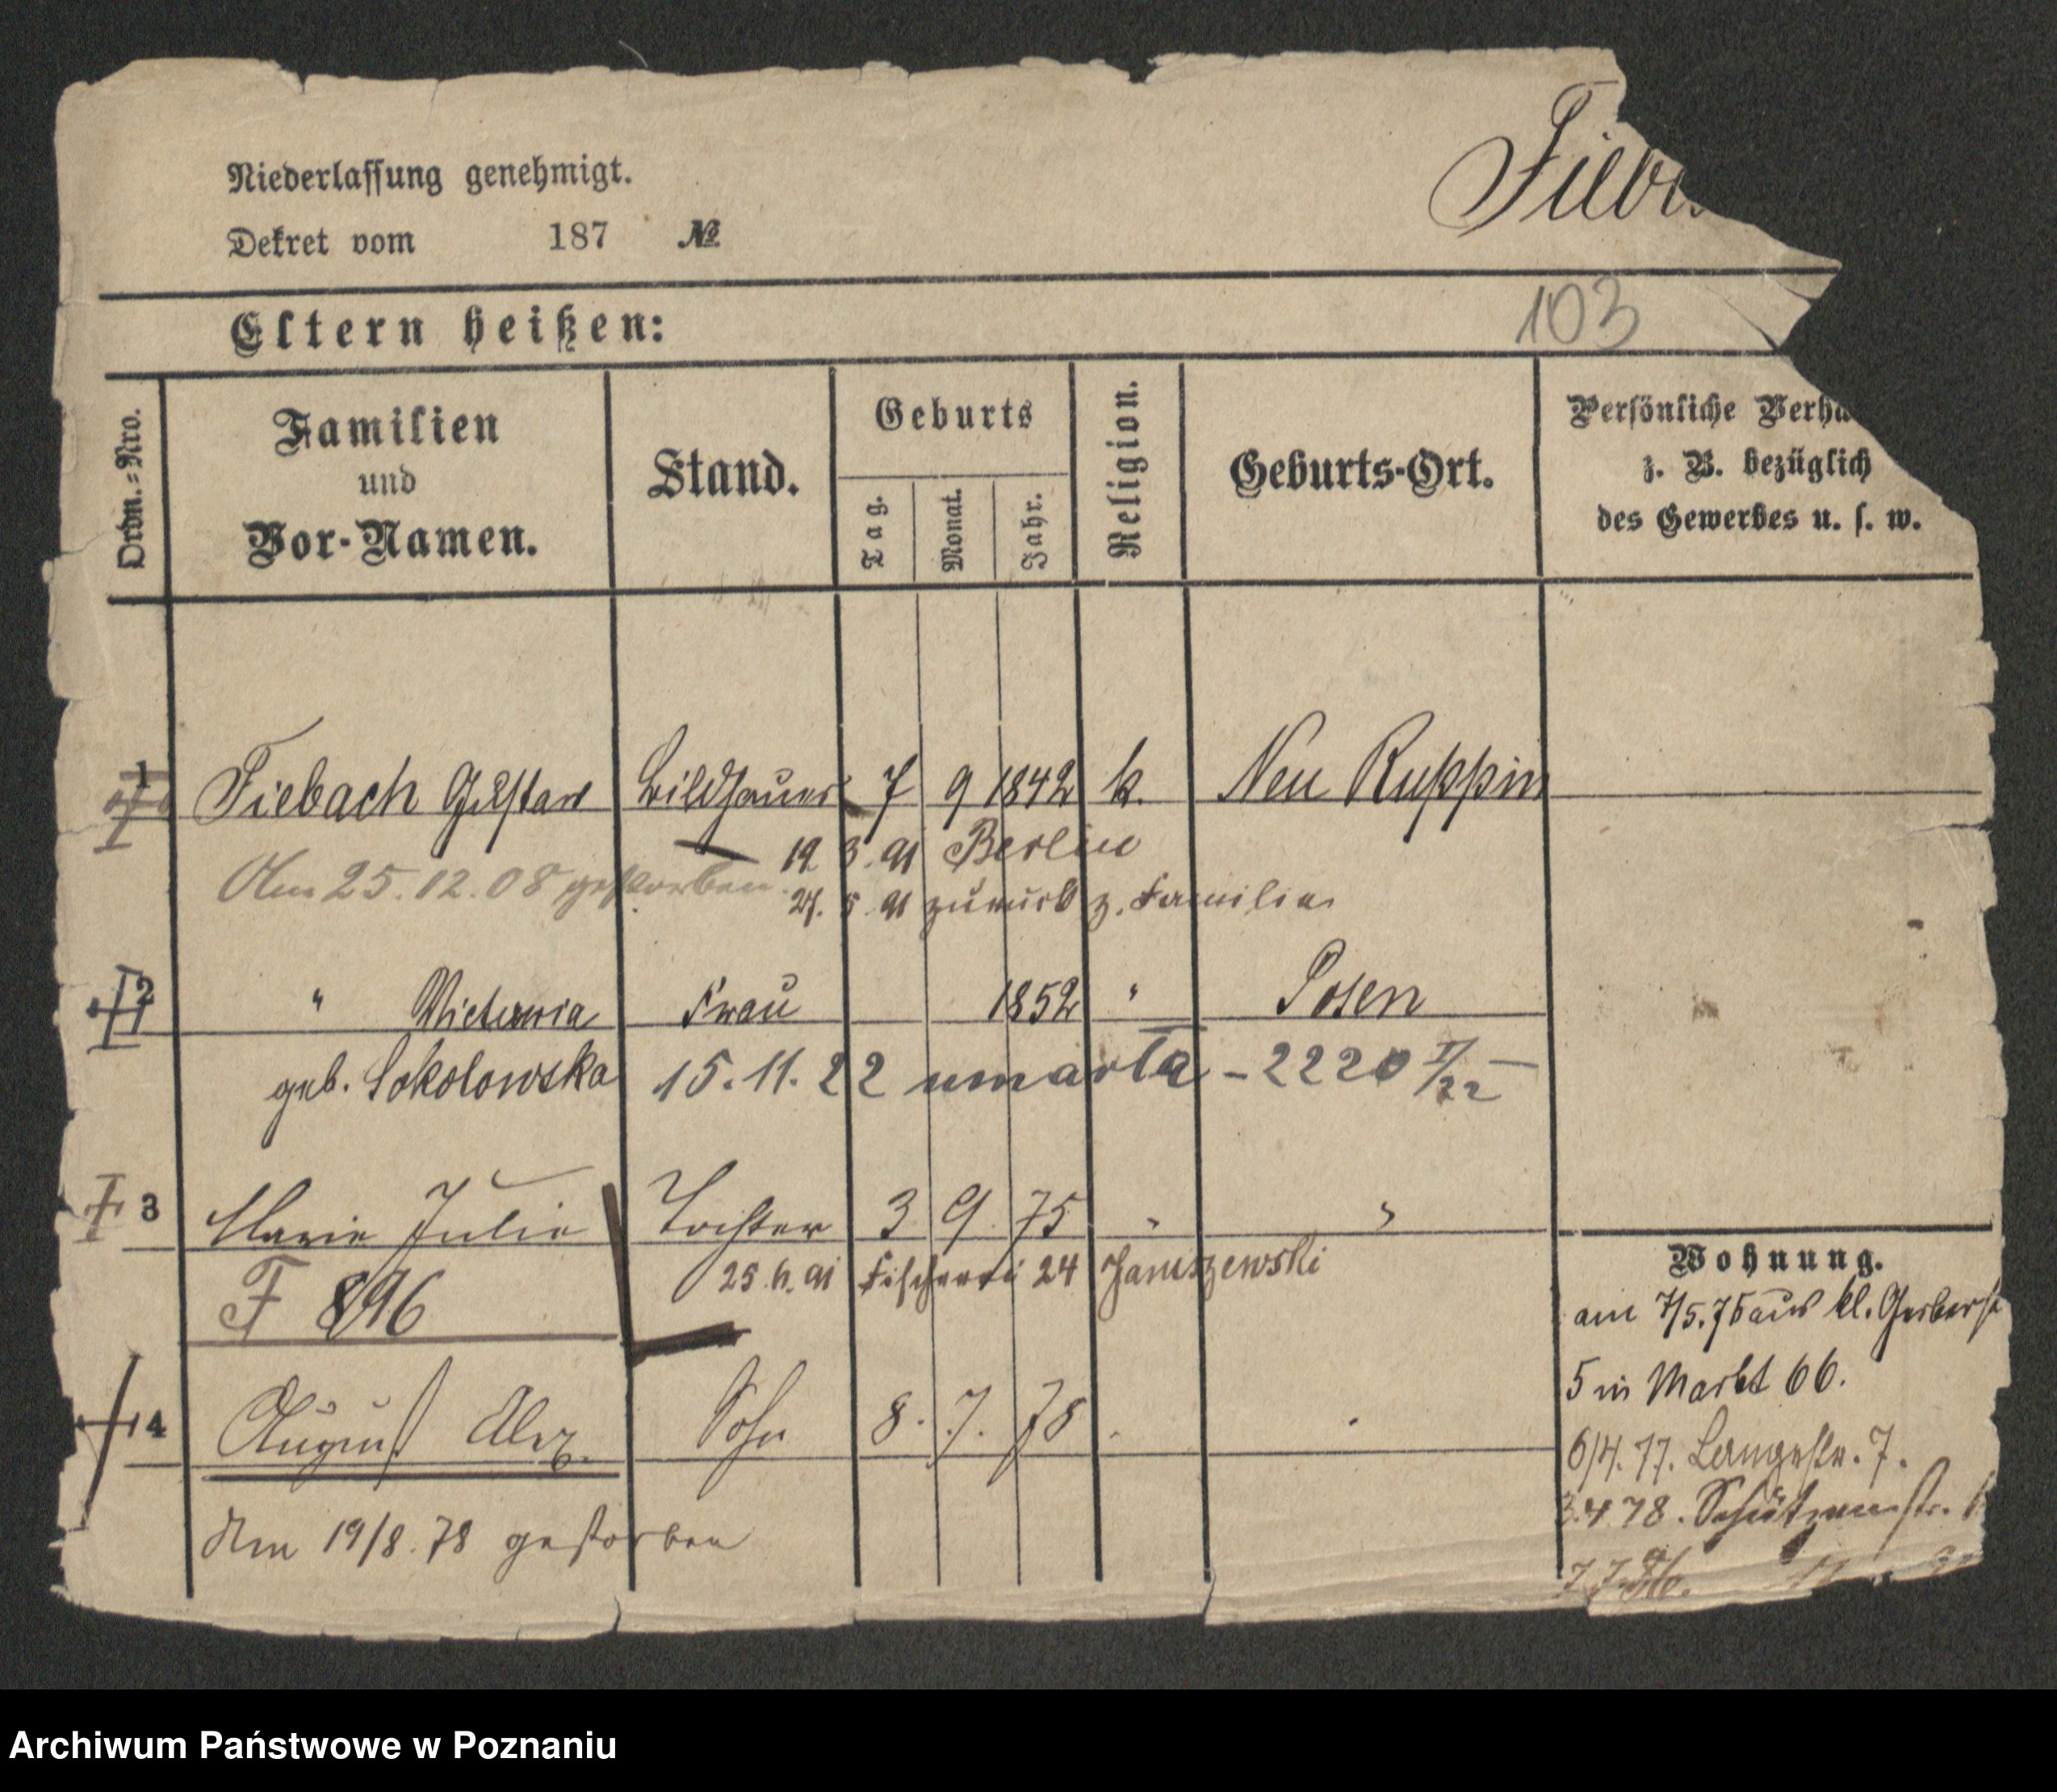 Niederlassung genehmigt.
Dekret vom 187 №
Fieb
Eltern heißen:
103
Ordn.=Nro.
Familien
und
Vor-Namen.
Stand.
Geburts
Tag.
Monat.
Jahr.
Religion.
Geburts-Ort.
Persönliche Verhä
z. B. bezüglich
des Gewerbes u. s. w.
1 Fiebach Gustav Bildhauer 7 9 1842 k. Neu Ruppin
19 3. 91 Berlin
Am 25.12.08 gestorben.
27. 5. 91 zurück z. Familie
2 " Victoria Frau 1852 " Posen
geb. Sokolowska 15.11.22 umarła - 2220
3 Marie Julie Tochter 3 9. 75 " "
F 896
25.6.91 Fischerei 24 Januszewski
4 August Alex. Sohn 8. 7. 78
Am 19/8. 78 gestorben
Wohnung.
am 7/5.75 aus kl. Gerberst
5 in Markt 66.
6/4. 77. Langestr. 7.
3.4 78. Schützenstr.
Archiwum Państwowe w Poznaniu